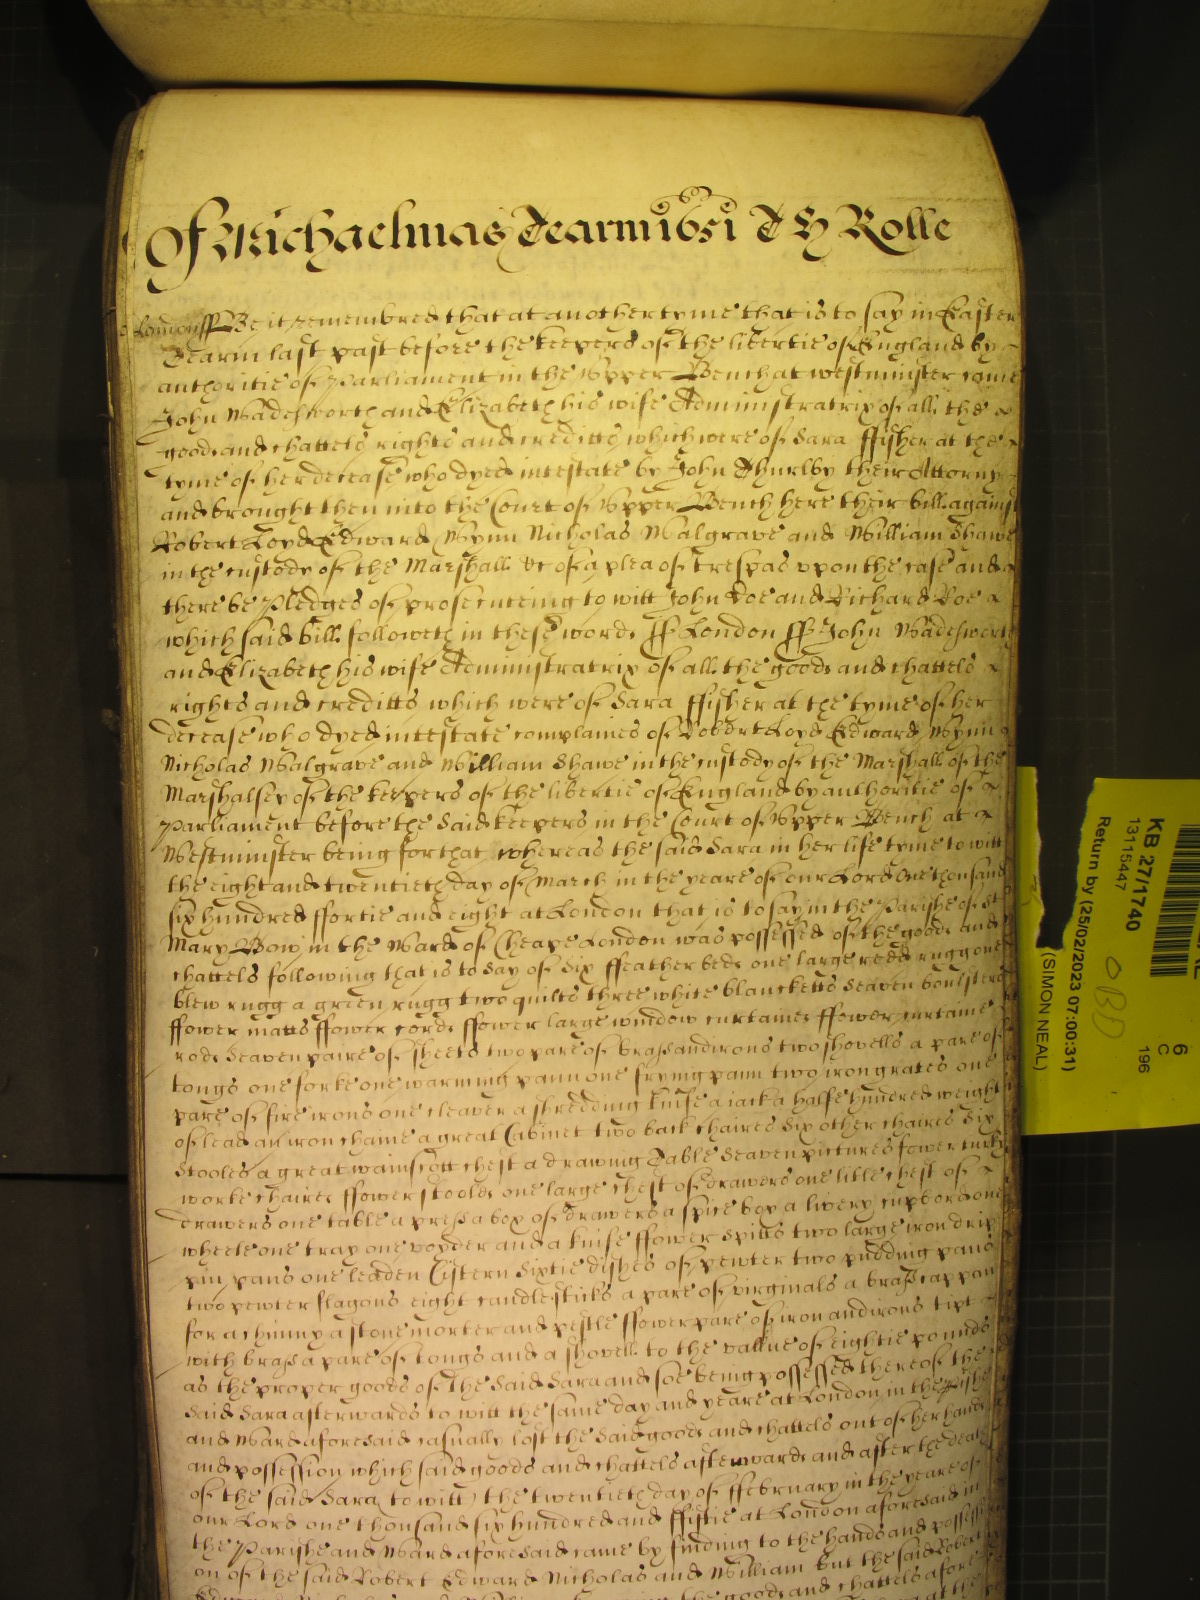 Of Michaelmas Tearm 1651 The Rolle
London ss Be it remembred that at another tyme that is to say in Easter
Tearm last past before the keepers of the libertie of England by
authoritie of Parliament in the Upper Bench at Westminster came
John Wadesworth and Elizabeth his wife Administratrix of all the
goods and chattels rights and creditts which were of Sara ffisher at the
tyme of her decease who dyed intestate by John Thurlby their Attorny
and brought then into the Court of Upper Bench here their bill against
Robert Loyd Edward Wynn Nicholas Walgrave and William Shawe
in the custody of the Marshall &c of a plea of trespas upon the case and
there be Pledges of prosecuteing to witt John Doe and Richard Roe
which said bill followeth in these words ss London ss John Wadesworth
and Elizabeth his wife Administratrix of all the goods and chattels
rights and creditts which were of Sara ffisher at the tyme of her
decease who dyed intestate complaines of Robert Loyd Edward Wynn
Nicholas Walgrave and William Shawe in the custody of the Marshall of the
Marshalsey of the keepers of the libertie of England by authoritie of
Parliament before the said keepers in the Court of Upper Bench at
Westminster being for that whereas the said Sara in her life tyme to witt
the eight and twentieth day of March in the yeare of our Lord One thousand
six hundred ffortie and eight at London that is to say in the Parishe of St
Mary Bow in the Ward of Cheape London was possessed of the goods and
chattels following that is to say of six ffeather beds one large redd rugg one
blew rugg a green rugg two quilts three white blancketts seaven boulsters
ffower matts ffower cords ffower large window curtaines ffower curtaine
rods seaven paire of sheets two pare of brass andirons two shovells a pare of
tongs one forke one warming pann one frying pann two iron grates one
pare of fire irons one cleaver a shredding knife a iack a halfe hundred weight
of lead an iron chaine a great Cabinet two back chaires six other chaires six
stooles a great wainscott chest a drawing Table seaven pictures fower turky
worke chaires ffower stooles one large chest of drawers one litle chest of
drawers one table a press a box of drawers a spice box a livery cupbord one
wheele one tray one voyder and a knife ffower spitts two large iron drip
pin pans one leaden Cistern sixtie dishes of pewter two pudding pans
two pewter flagons eight candlesticks a pare of virginals a brass cappan
for a chimny a stone morter and pestle ffower pare of iron andirons tipt
with brass a pare of tongs and a shovell to the vallue of eightie pounds
as the proper goods of the said Sara and soe being possessed thereof the
said Sara afterwards to witt the same day and yeare at London in the Pishe
and Ward aforesaid casually lost the said goods and chattels out of her hands
and possession which said goods and chattels afterwards and after the death
of the said Sara to witt the twentieth day of ffebruary in the yeare of
our Lord one thousand six hundred and ffiftie at London aforesaid in
the Parishe and Ward aforesaid came by finding to the hands and possessi
on of the said Robert Edward Nicholas and William but the said Robert
the goods and chattels afore
KB 27/1740
13115447
Return by (25/02/2023 07:00:31)
(SIMON NEAL)
6
C
196